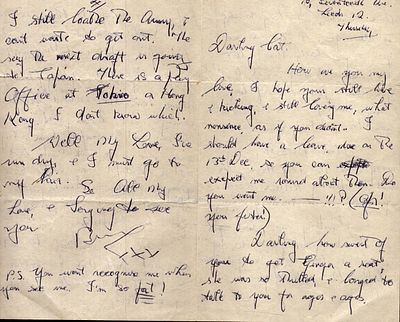 19, Seventeenth Ave.
Leeds 12.
Thursday
Darling Cat.
How are you my
love, I hope you still live
& kicking, & still loving me, what
nonsense, as if you didn't. I
should have a leave, due on the
13th Dec, so you can
expect me round about then. Do
you want me. !!? (Oh!
you fister)
Darling, how sweet of
you to get Ginger a seat,
she was so thrilled, & longed to
talk to you for ages & ages.
I still loathe the Army, &
can't wait to get out. They
say the next draft is going
to Japan. There is a Pay
Office at Tokio & Hong
Kong I don't know which.
Well My Love, I've
run dry, & I must go to
my hair. So All My
Love, & longing to see
you
P.S. You won't recognise me when
you see me. I'm so fat!